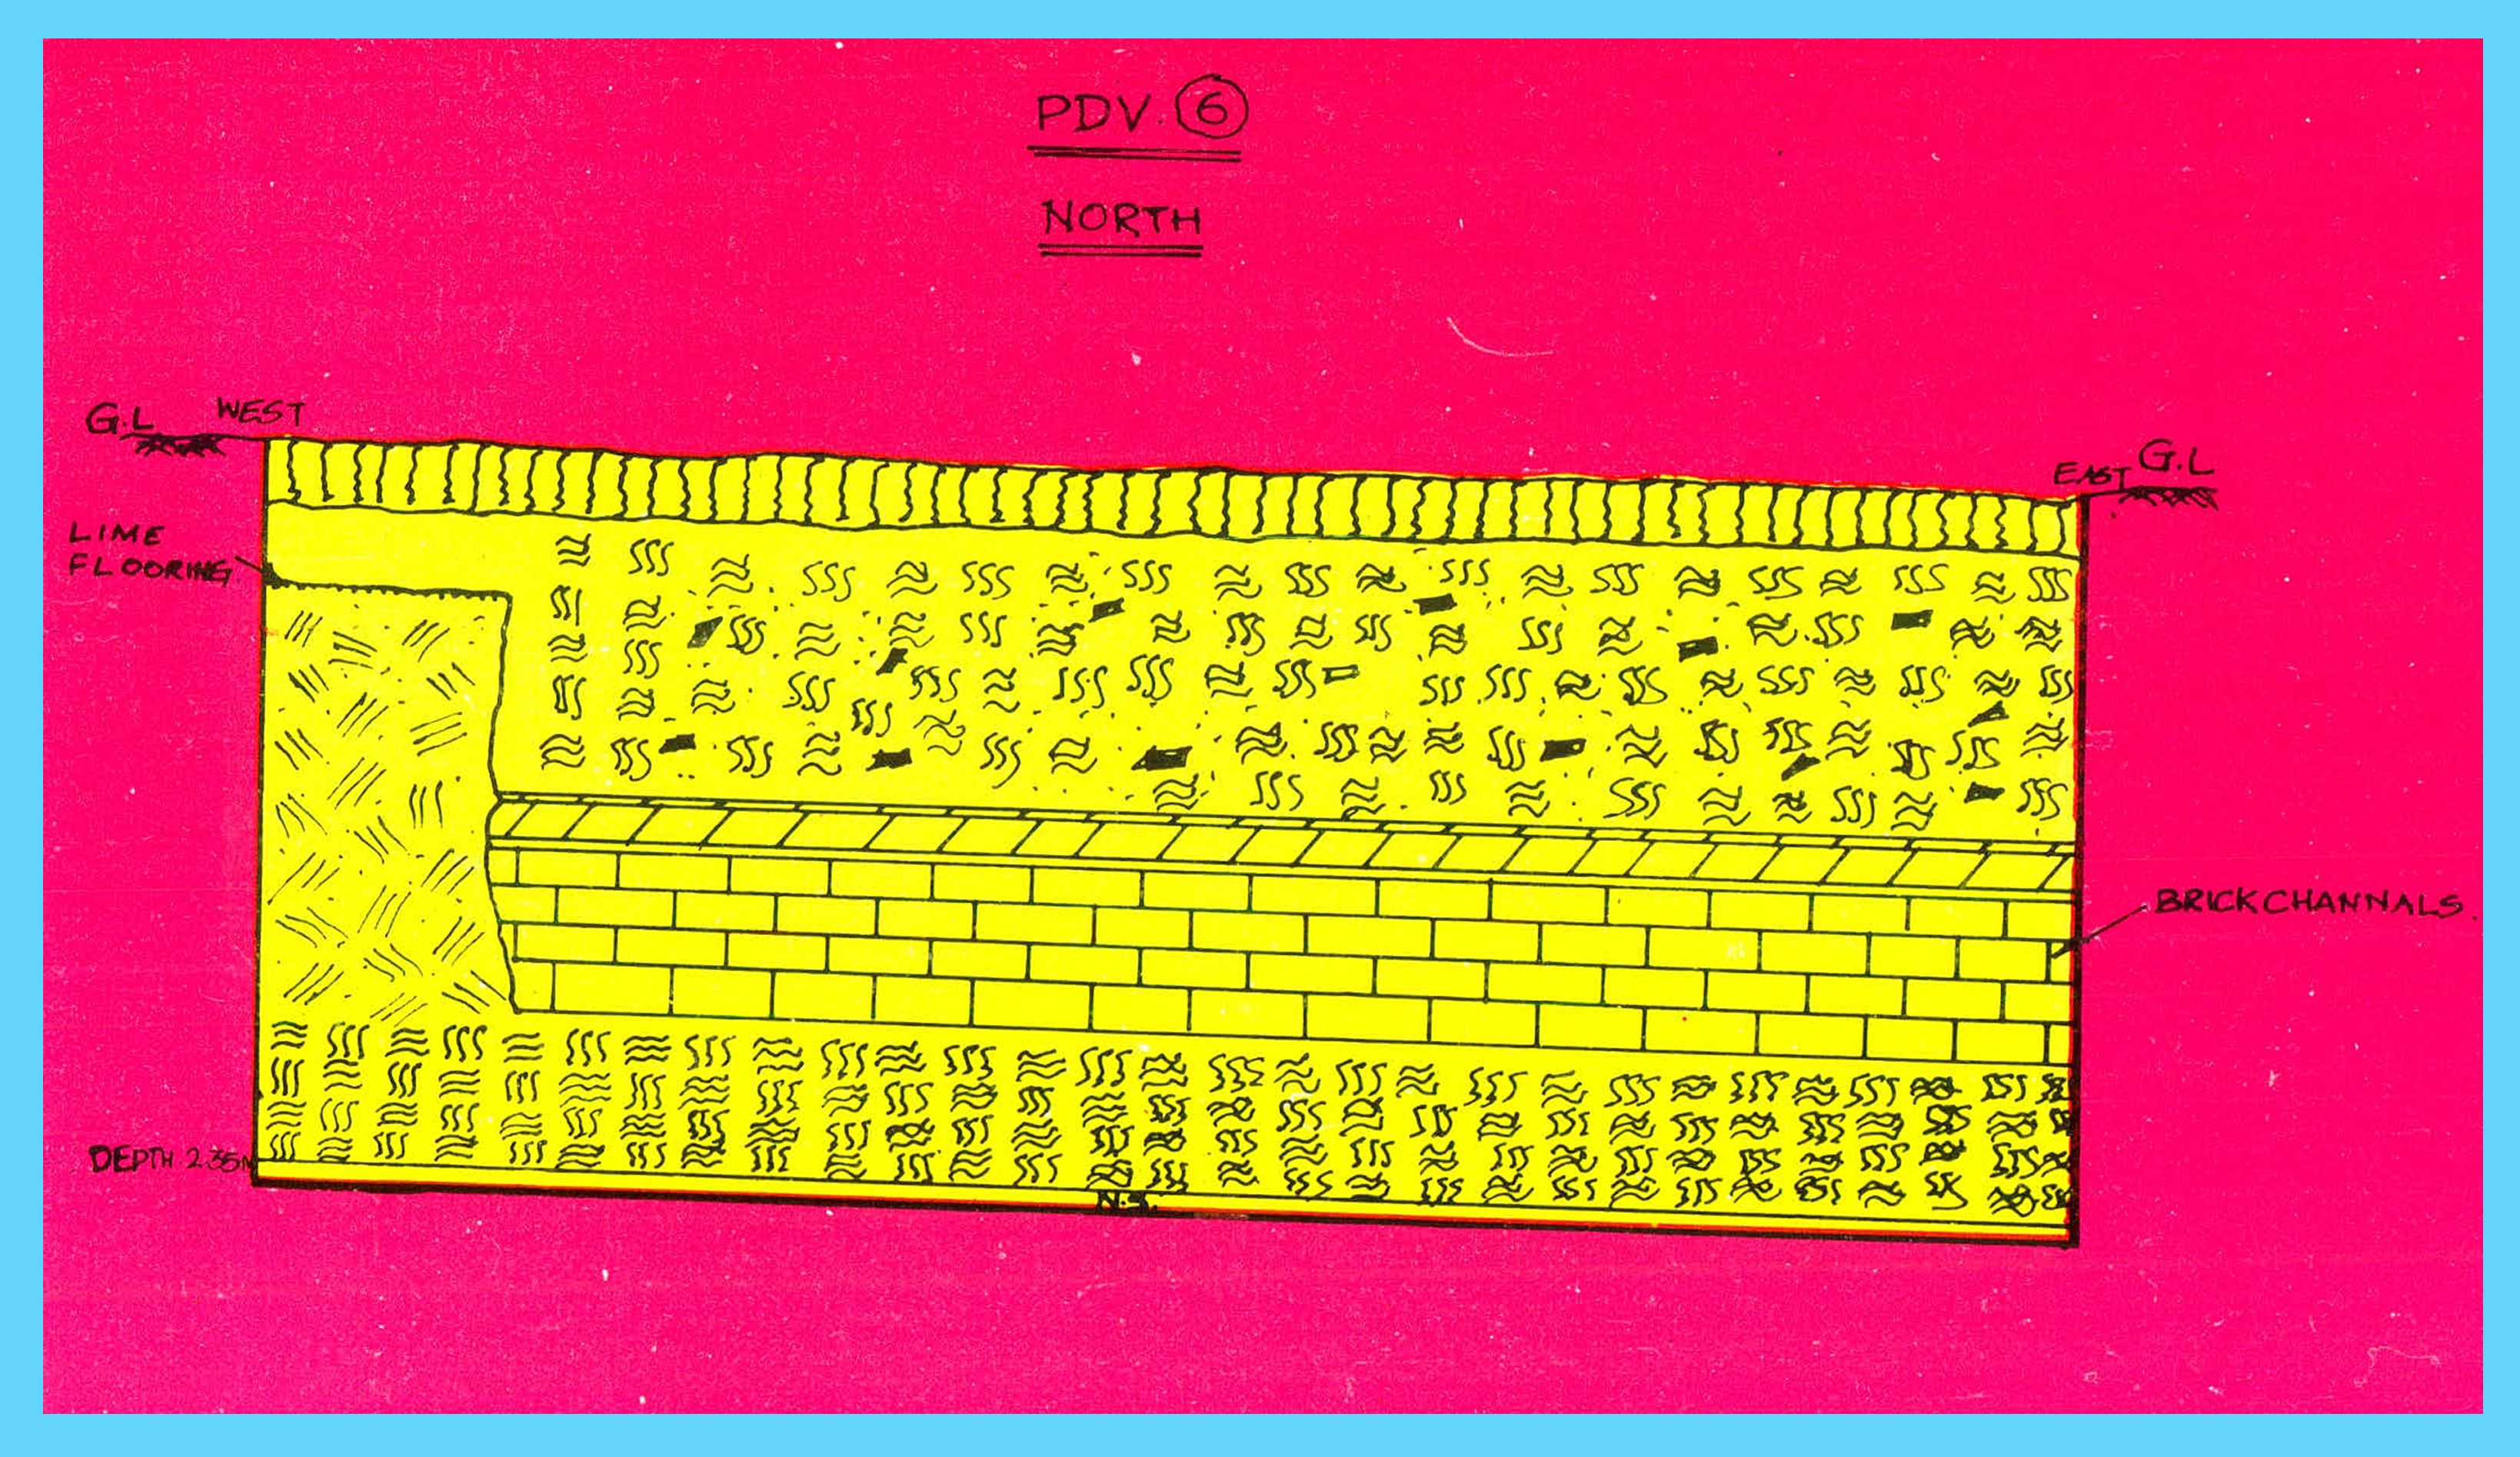 PDV. 6
NORTH
G.L WEST
EAST G.L
LIME
FLOORING
BRICK CHANNALS.
DEPTH 2.35M